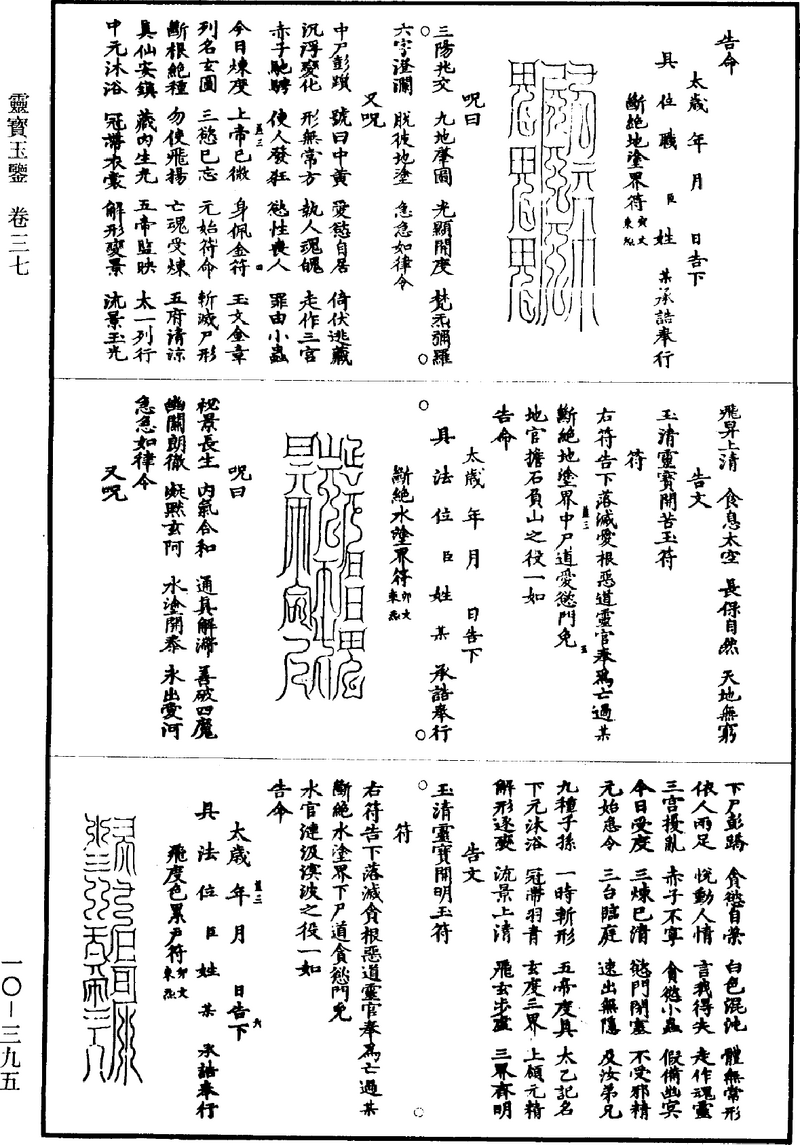 靈寶玉鑒　卷三七
一〇—三九五
告命
太歲　年　月　日告下
具　位　職　臣　姓　某承誥奉行
斷絕地塗界符
呪曰
三陽兆交　九地肇圓　光顯開度　梵炁彌羅
六字澄瀾　脫彼地塗　急急如律令
又呪
中尸彭躓　號曰中黃　愛慾自居　倚伏逃藏
沉浮變化　形無常方　執人魂魄　走作三宮
赤子馳騁　使人發狂　慾性喪人　罪由小蟲
今日煉度　上帝已徵　身佩金符　玉文金章
列名玄圖　三慾已忘　元始符命　斬滅尸形
斷根絕種　勿使飛揚　亡魂受煉　五府清涼
具仙安鎮　藏內生光　五帝監映　太一列行
中元沐浴　冠帶衣裳　解形變景　流景玉光
飛昇上清　食息太空　長保自然　天地無窮
告文
玉清靈寶開苦玉符
符
右符告下落滅愛根惡道靈官奉爲亡過某
斷絕地塗界中尸道愛慾門免
地官擔石負山之役一如
告命
太歲　年　月　日告下
具　法　位　臣　姓　某　承誥奉行
斷絕水塗界符
呪曰
祝景長生　內氣合和　通真解滯　善破四魔
幽關朗徹　凝默玄阿　水塗開泰　永出愛河
急急如律令
又呪
下尸彭蹻　貪慾自榮　白色混沌　體無常形
依人兩足　悅動人情　言我得失　走作魂靈
三宮擾亂　赤子不寧　貪慾小蟲　假倚幽冥
今日受度　三煉已清　慾門閉塞　不受邪精
元始急令　三台臨庭　速出無隱　及汝弟兄
九種子孫　一時斬形　五帝度具　太乙記名
下元沐浴　冠帶羽青　玄度三界　上領元精
解形遂變　流景上清　飛玄步虛　三界齊明
告文
玉清靈寶開明玉符
符
右符告下落滅貪根惡道靈官奉爲亡過某
斷絕水塗界下尸道貪慾門免
水官漣汲溟波之役一如
告命
太歲　年　月　日告下
具　法　位　臣　姓　某　承誥奉行
飛度色累尸符